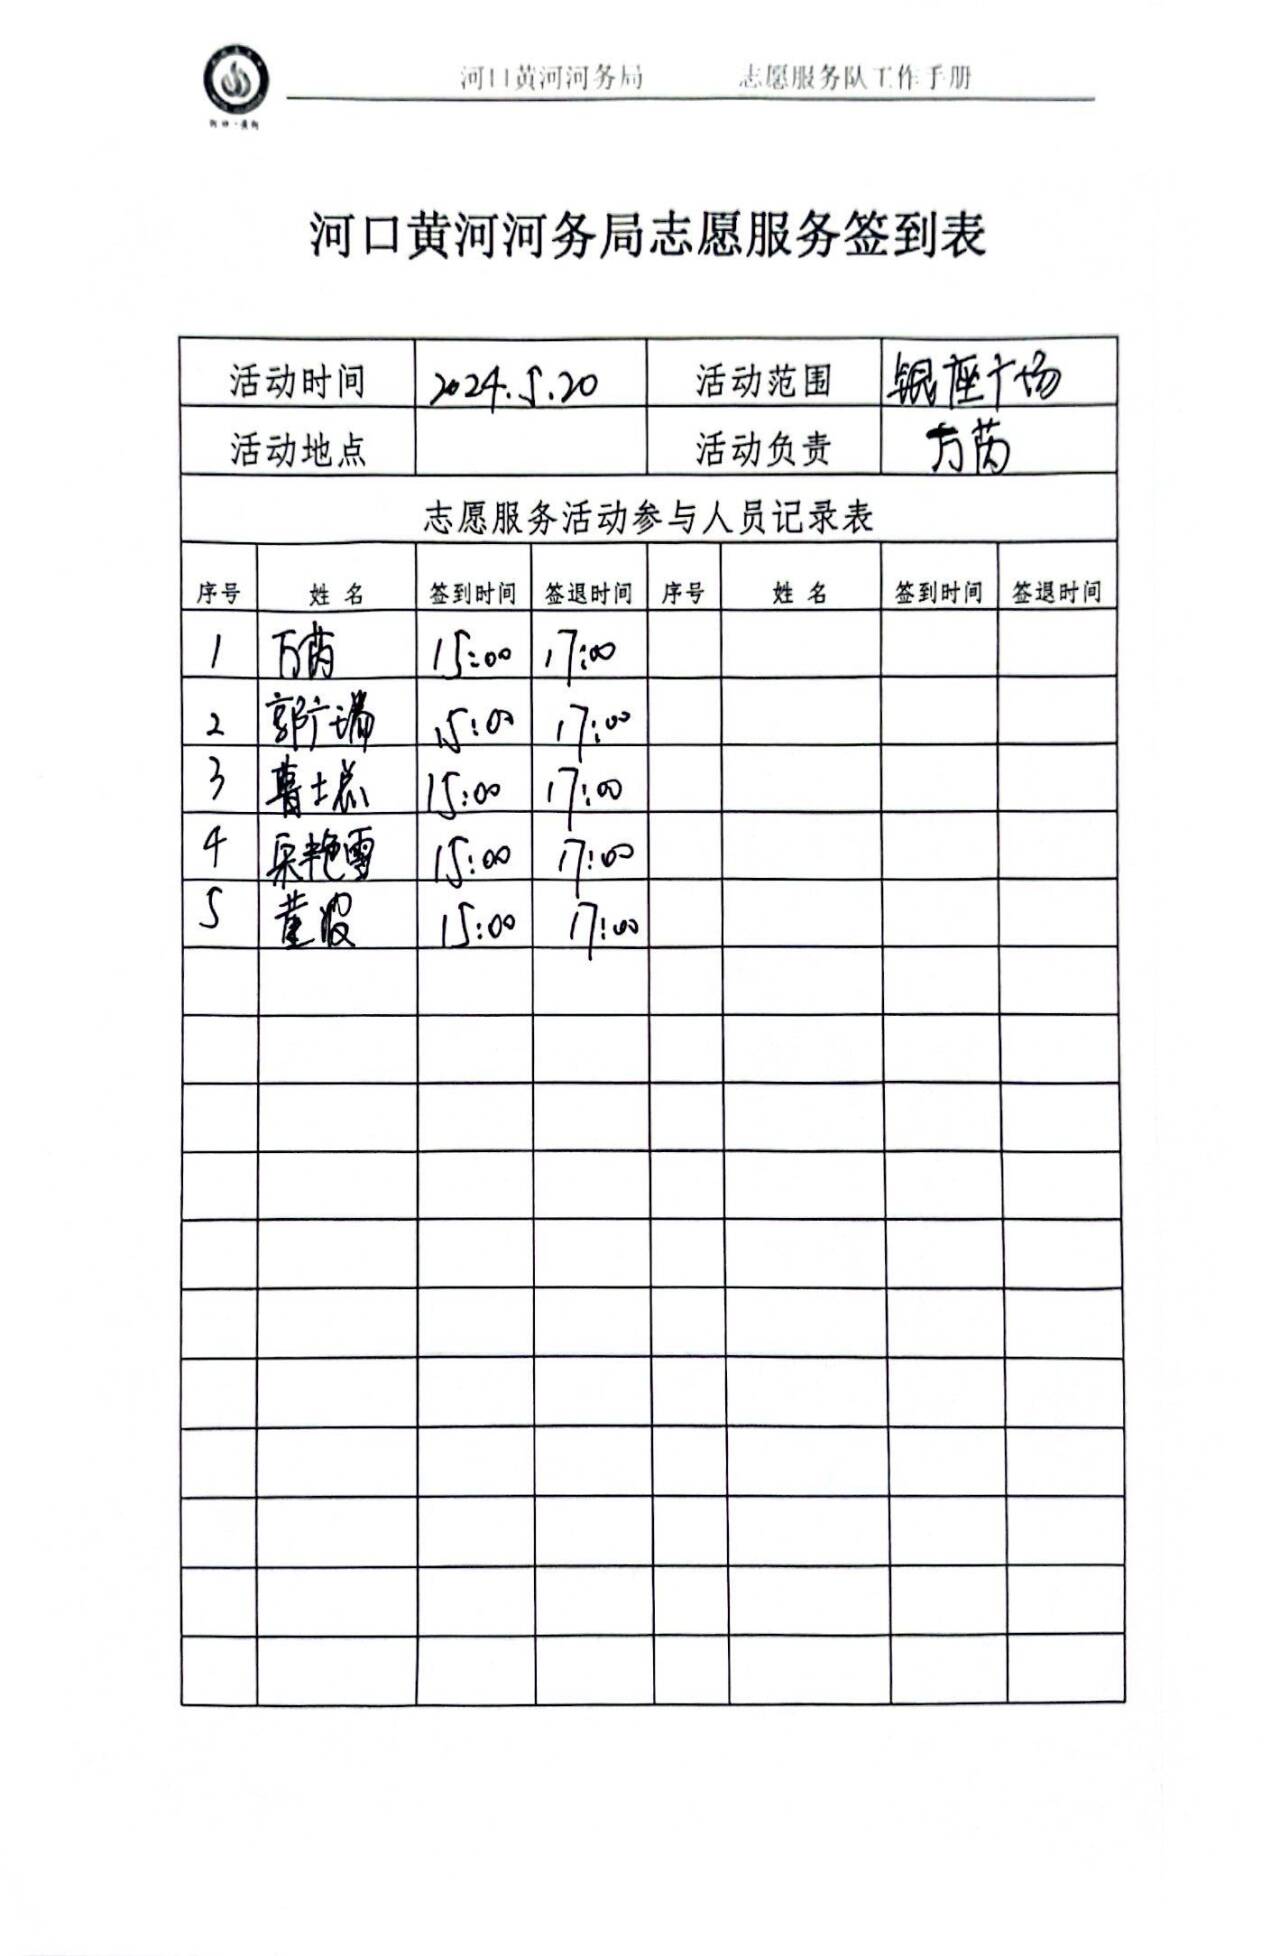 河口·黄河
河口黄河河务局 志愿服务队工作手册
河口黄河河务局志愿服务签到表
活动时间 2024.5.20 活动范围 银座广场
活动地点 活动负责 万芮
志愿服务活动参与人员记录表
序号 姓名 签到时间 签退时间 序号 姓名 签到时间 签退时间
1 万芮 15:00 17:00
2 郭广瑞 15:00 17:00
3 15:00 17:00
4 艳雪 15:00 17:00
5 董波 15:00 17:00